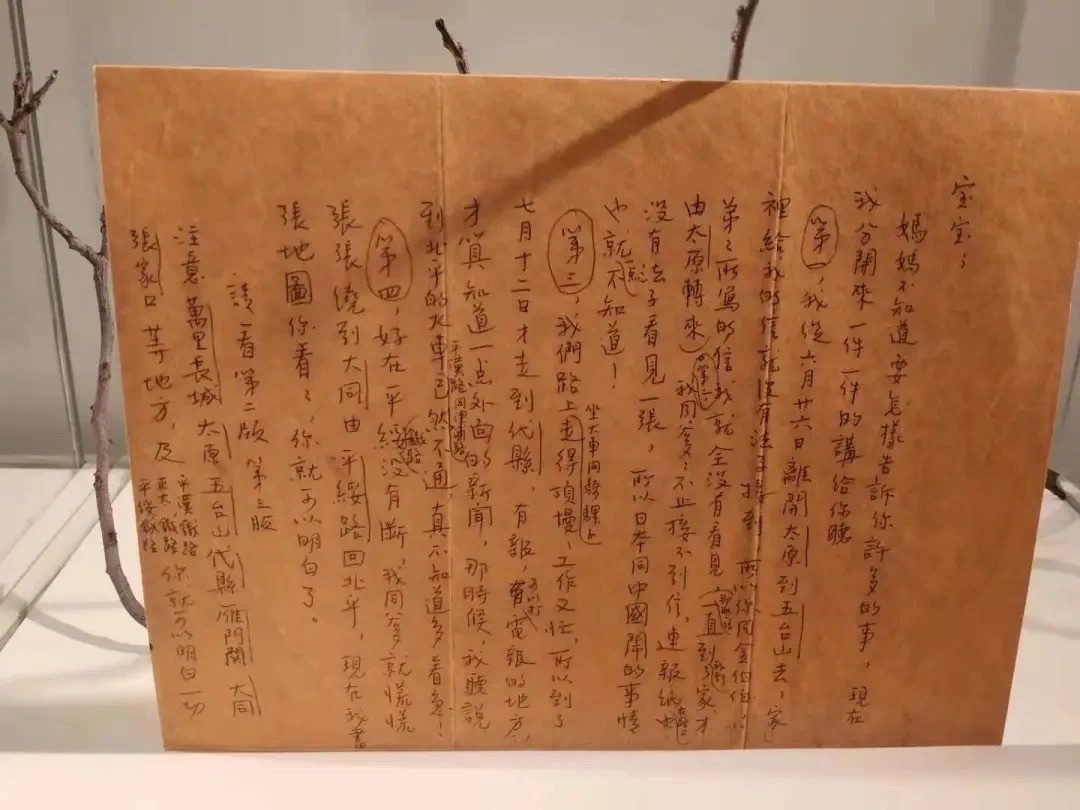 宝宝；
媽媽不知道要怎樣告訴你許多的事，現在
我分開來一件一件的講給你聽
第一，我從六月廿六日離開太原到五台山去，家
裡給我的信就沒有法子接到，所以你同金伯伯、
弟弟所寫的信我就全沒有看見（那些信一直到我到家才
由太原轉來）
第二，我同爹爹不止接不到信，連報紙也
沒有法子看見一張，所以日本同中國鬧的事情
也就一点不知道！
第三，我們路上坐大車同騎騾子走得頂慢，工作又忙，所以到了
七月十二日才走到代縣，有報，有可以打電報的地方，
才算知道一点外面的新聞，那時候，我聽說
到北平的火車平漢路同津浦路已然不通，真不知道多着急！
第四，好在平綏鐵路沒有斷，我同爹爹就慌慌
張張繞到大同由平綏路回北平，現在我畫
張地圖你看看，你就可以明白了。
請看第二版 第三版
注意萬里長城 太原 五台山 代縣 雁門關 大同
張家口等地方，及平漢鐵路 正太鐵路 平綏鐵路 你就可以明白一切